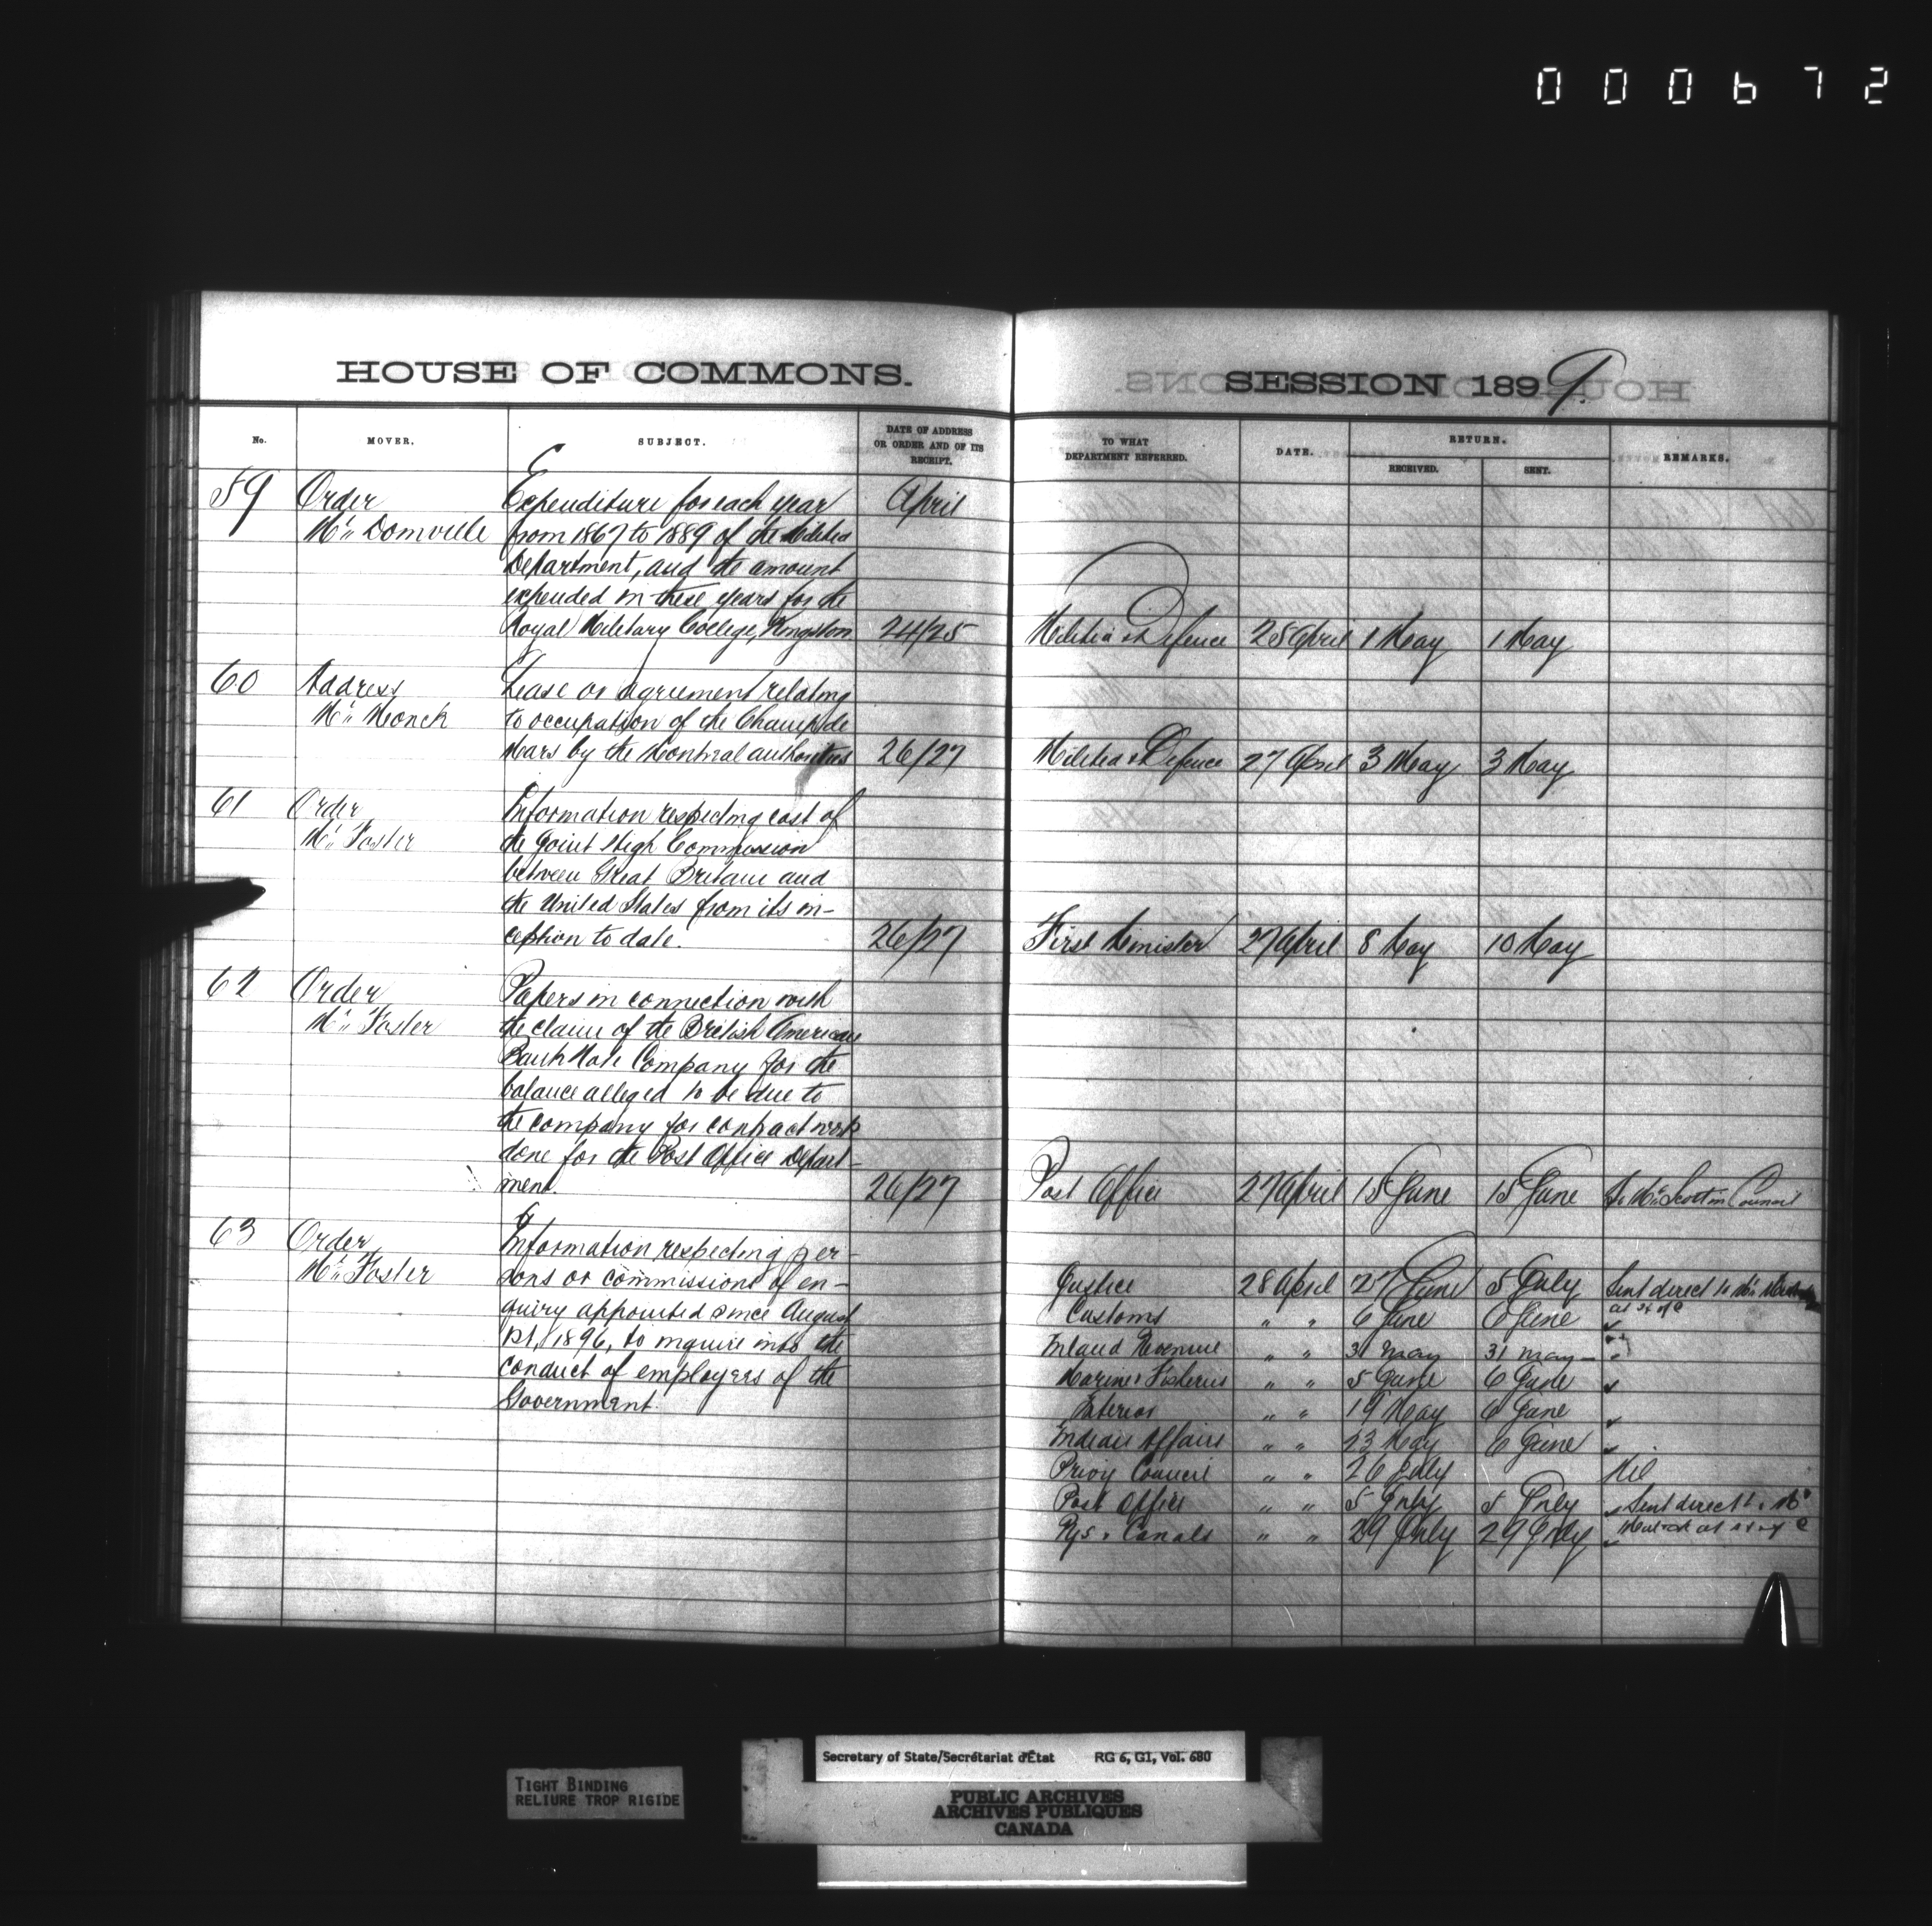 000672
HOUSE OF COMMONS.
No. MOVER. SUBJECT. DATE OF ADDRESS OR ORDER AND OF ITS RECEIPT.
59 Order Expenditure for each year April
Mr. Domville from 1867 to 1889 of the Militia
Department, and the amount
expended in these years for the
Royal Military College, Kingston 24/25
60 Address Lease or agreement relating
Mr. Monck to occupation of the Champ de
Mars by the Montreal authorities 26/27
61 Order Information respecting cost of
Mr. Foster the Joint High Commission
between Great Britain and
the United States from its in-
ception to date. 26/27
62 Order Papers in connection with
Mr. Foster the claim of the British American
Bank Note Company for the
balance alleged to be due to
the company for contract work
done for the Post Office Depart-
ment. 26/27
63 Order Information respecting per-
Mr. Foster sons or commissions of en-
quiry appointed since August
1st, 1896, to inquire into the
conduct of employees of the
Government.
SESSION 1899.
TO WHAT DEPARTMENT REFERRED. DATE. RETURN. RECEIVED. SENT. REMARKS.
Militia & Defence 25 April 1 May 1 May
Militia & Defence 27 April 3 May 3 May
First Minister 27 April 8 May 10 May
Post Office 27 April 15 June 15 June To Mr. Scott in Council
Justice 28 April 27 June 5 July Sent direct to Mr.
Customs " " 6 June 6 June
Inland Revenue " " 31 May 31 May
Marine & Fisheries " " 5 June 6 June
Interior " " 19 May 6 June
Indian Affairs " " 23 May 6 June
Privy Council " " 26 July Nil
Post Office " " 5 July 5 July Sent direct to Mr
Rys. & Canals " " 29 July 29 July
TIGHT BINDING
RELIURE TROP RIGIDE
Secretary of State/Secrétariat d'État RG 6, G1, Vol. 680
PUBLIC ARCHIVES
ARCHIVES PUBLIQUES
CANADA